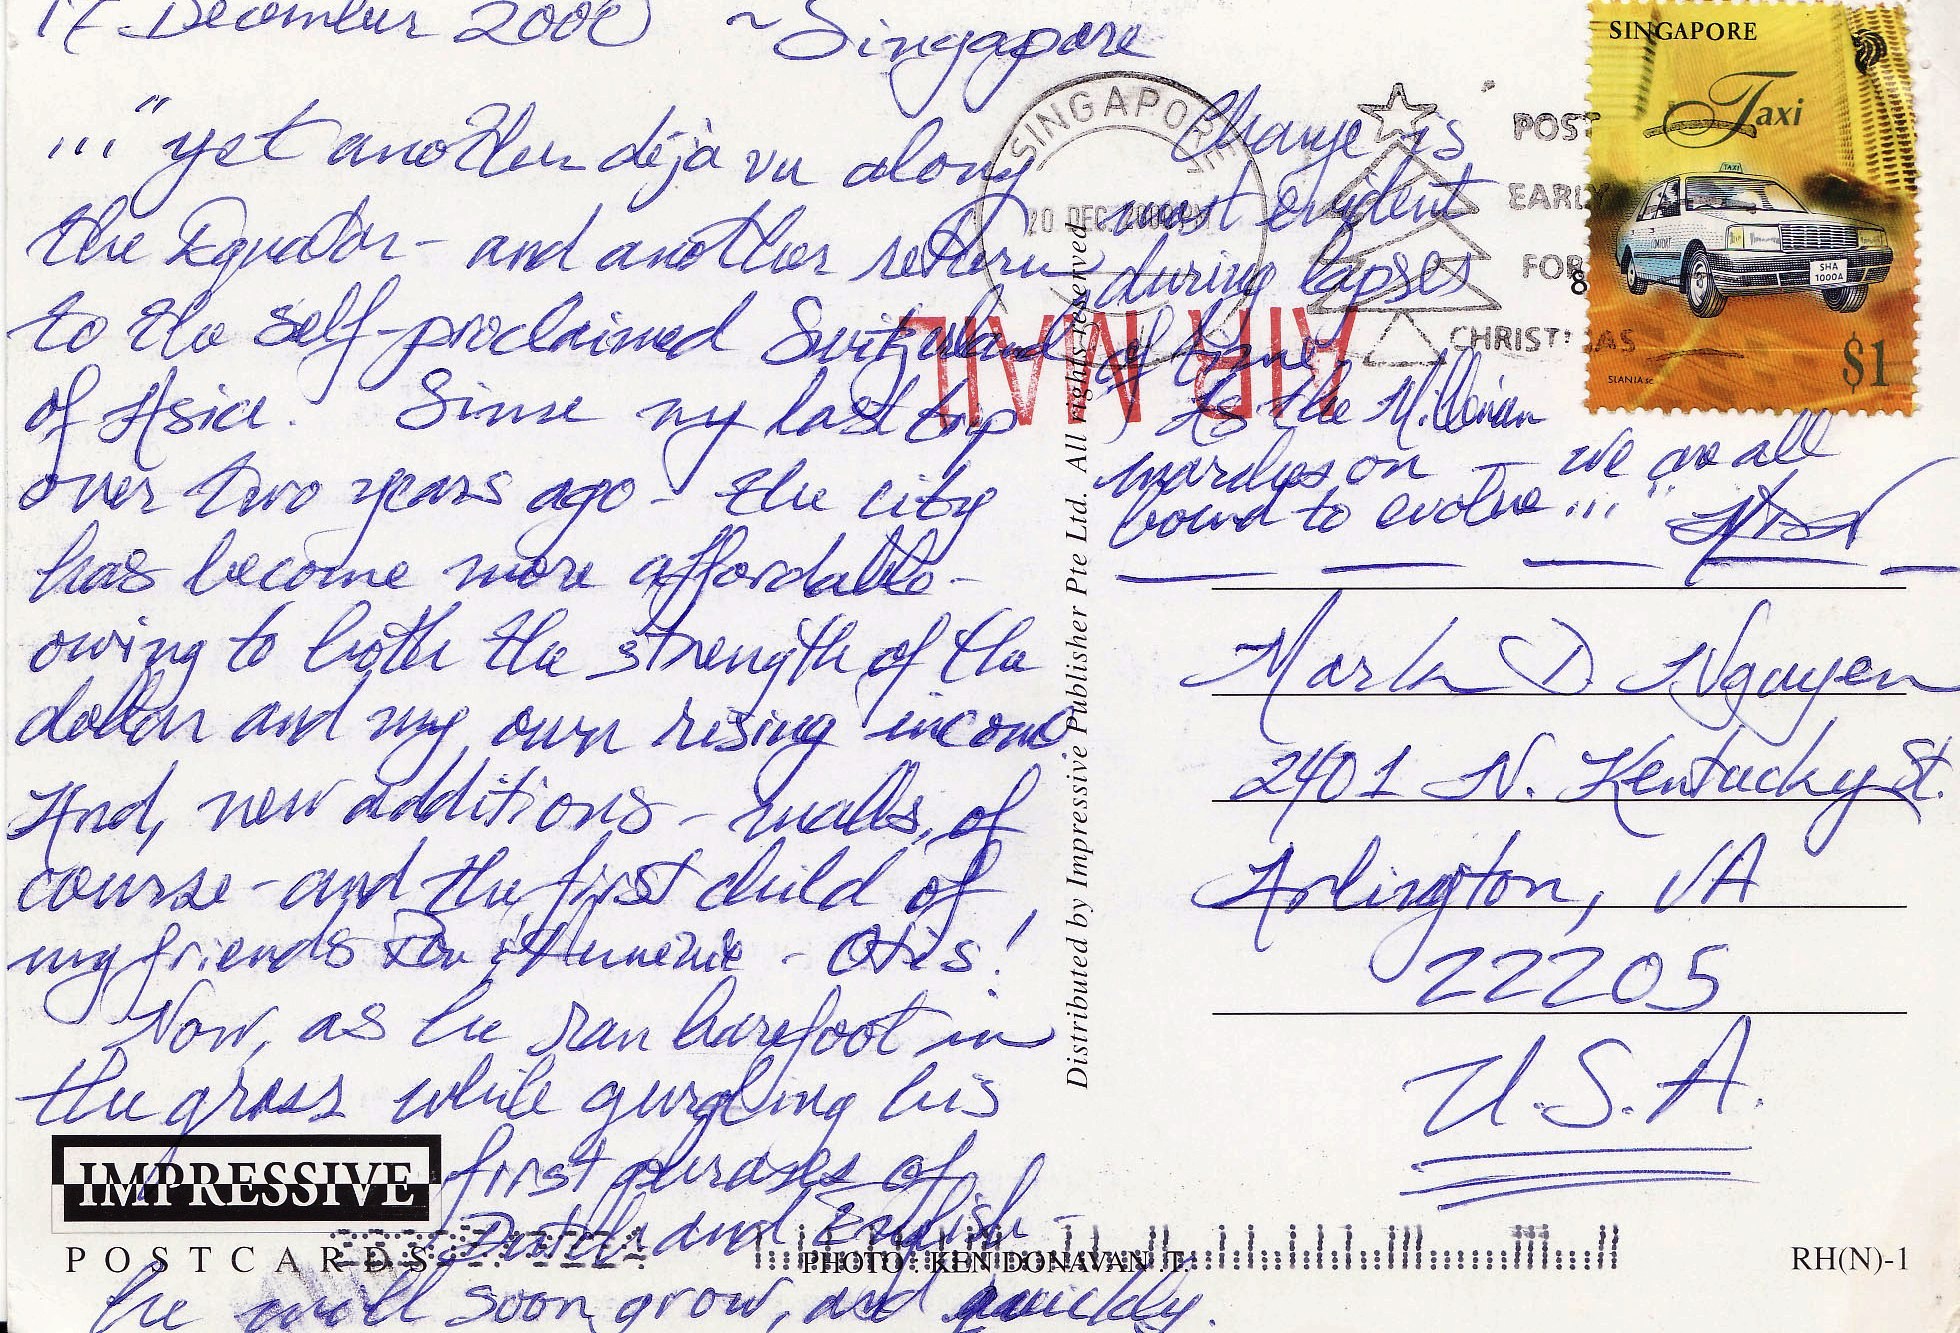 December 2000 ~ Singapore
..." yet another déjà vu along
the Equator - and another return
to the self-proclaimed Switzerland
of Asia. Since my last trip
over two years ago - the city
has become more affordable -
owing to both the strength of the
dollar and my own rising income
And, new additions - malls, of
course - and the first child of
my friends Ron & - Otis!
Now, as he ran barefoot in
the grass while gurgling his
first phrases of
Dutch and English -
he will soon grow, and quickly.
Change is
most evident
during lapses
of time.
As the
marches on - we are all
bound to evolve..."
SINGAPORE
20 DEC 2000
POST
EARLY
FOR
CHRISTMAS
AIR MAIL
SINGAPORE
Taxi
TAXI
SHA
1000A
$1
Mark D. Nguyen
2401 N. Kentucky St.
Arlington, VA
22205
U.S.A.
Distributed by Impressive Publisher Pte Ltd. All rights reserved
IMPRESSIVE
POSTCARDS
PHOTO : KEN DONAVAN .T.
RH(N)-1